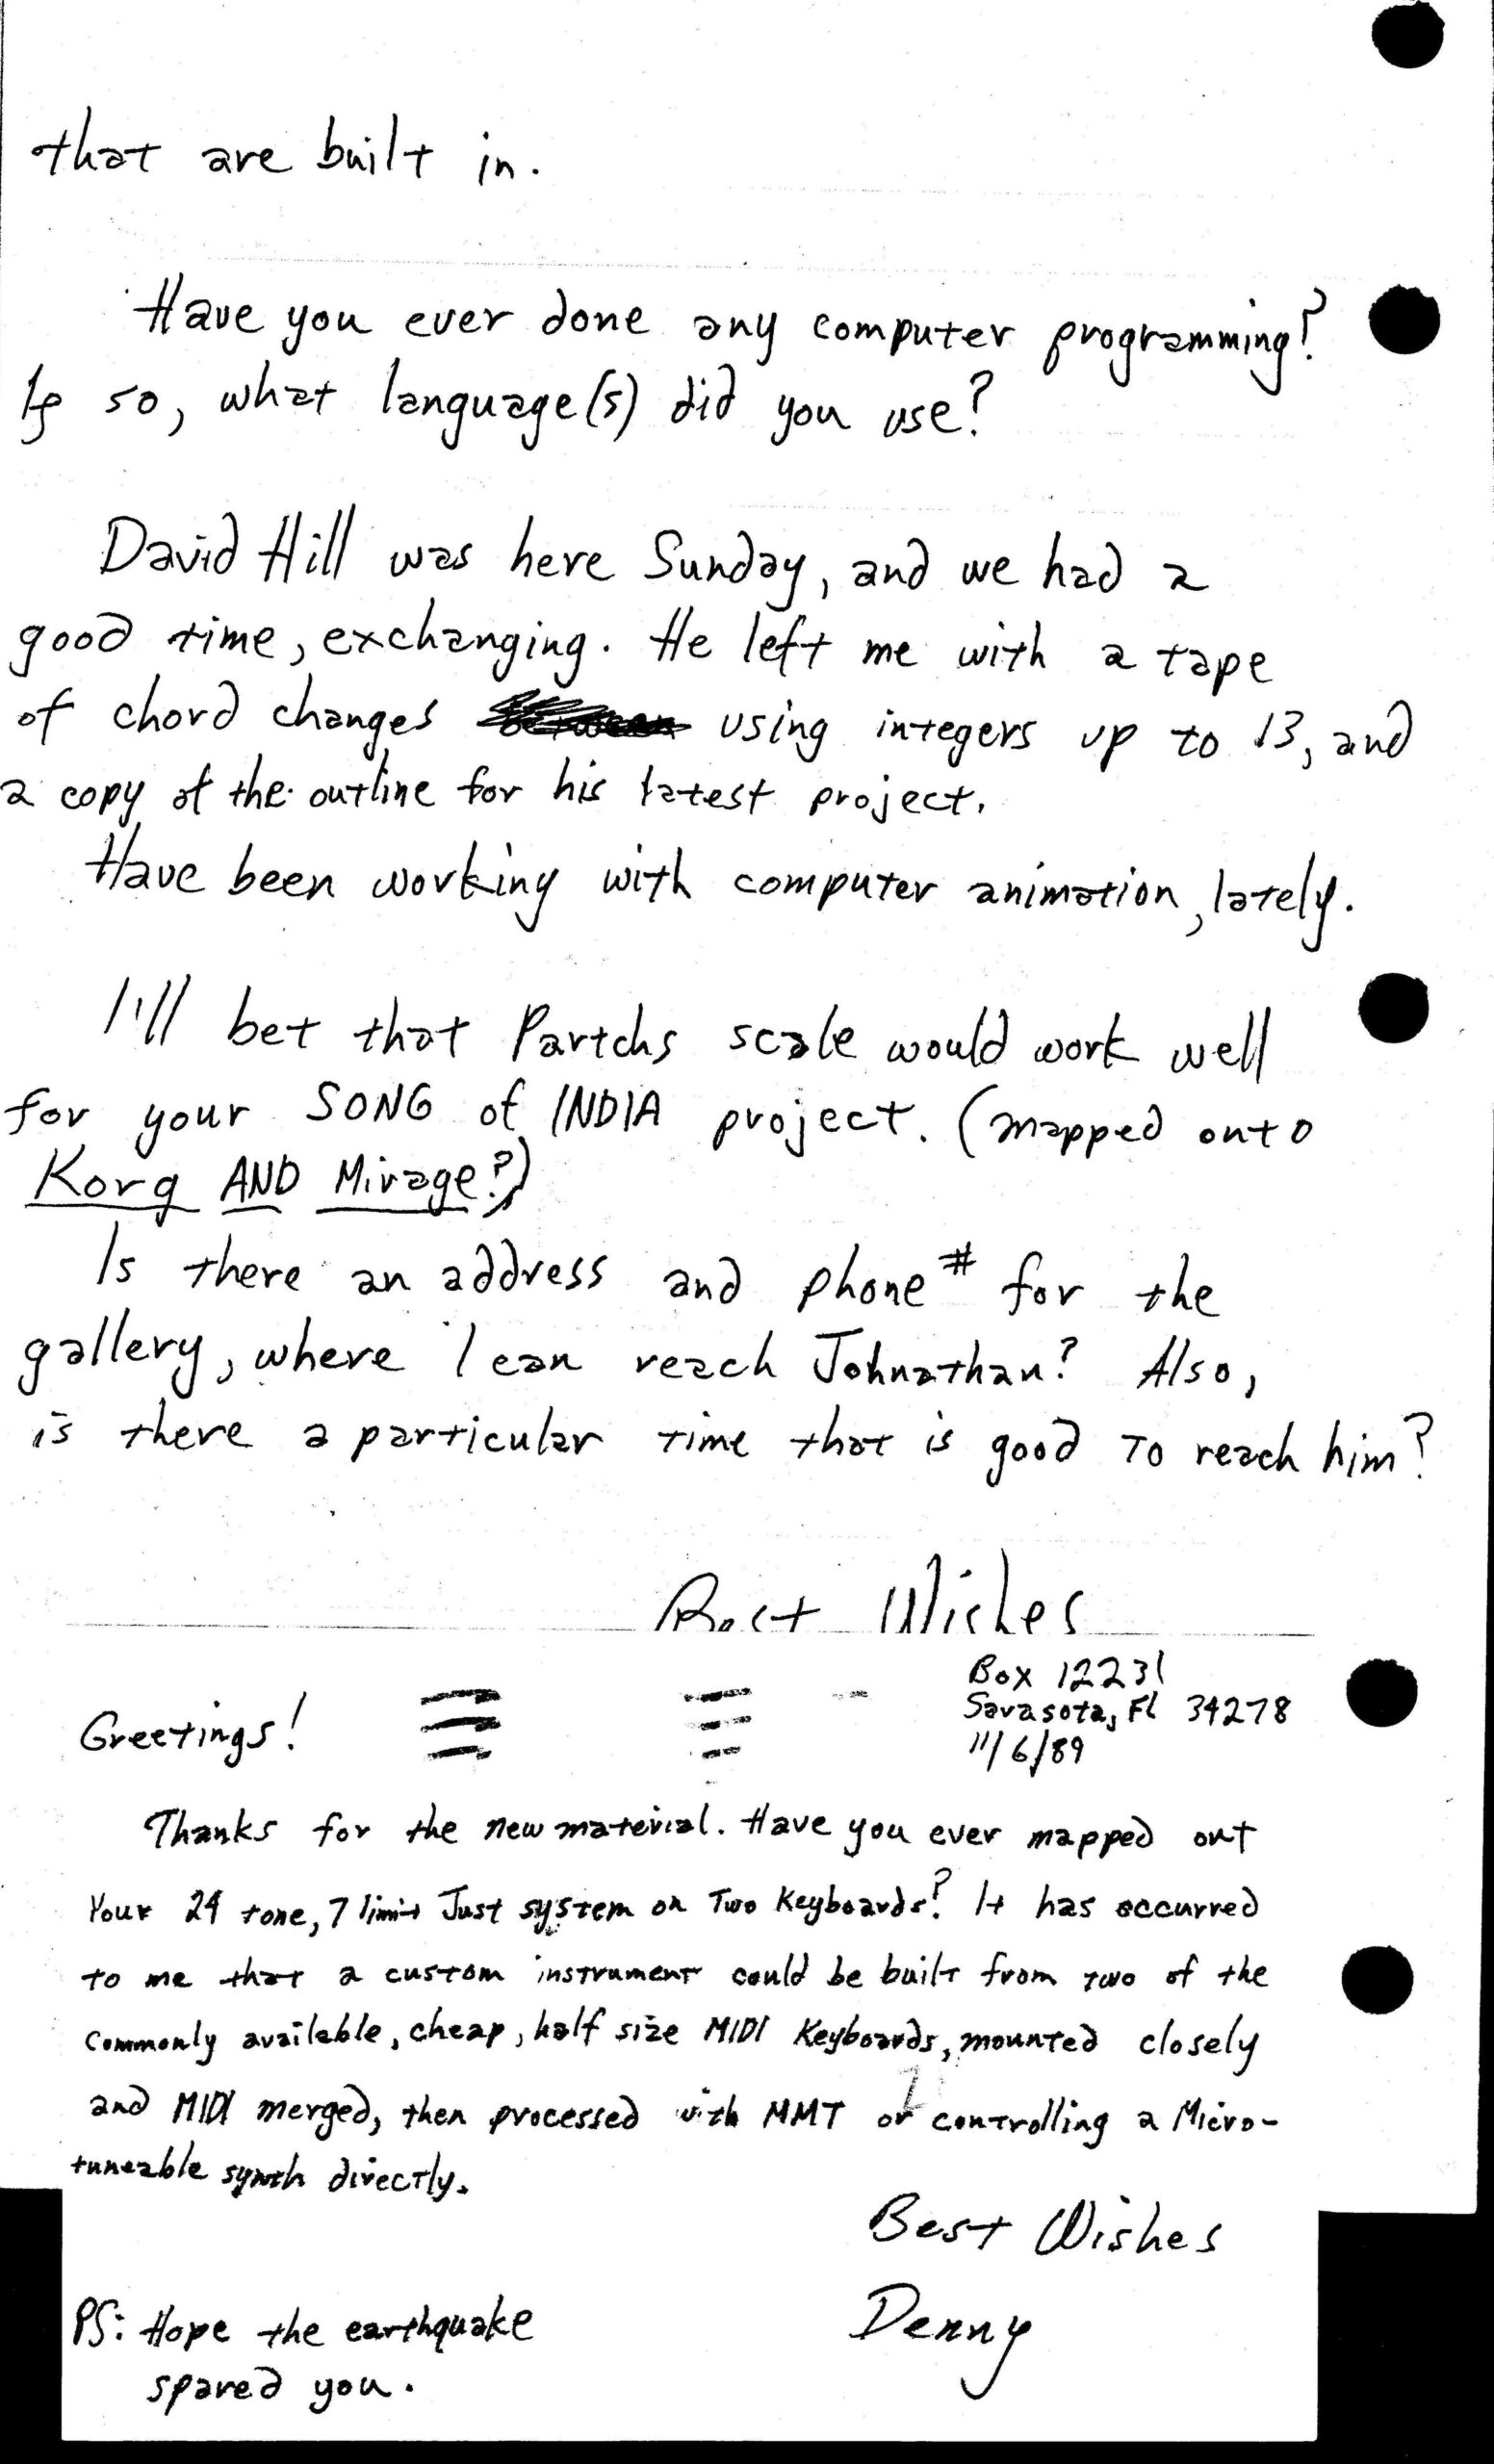 that are built in.
Have you ever done any computer programming?
If so, what language(s) did you use?
David Hill was here Sunday, and we had a
good time, exchanging. He left me with a tape
of chord changes using integers up to 13, and
a copy of the outline for his latest project.
Have been working with computer animation, lately.
I'll bet that Partchs scale would work well
for your SONG of INDIA project. (mapped onto
Korg AND Mirage?)
Is there an address and phone # for the
gallery, where I can reach Johnathan? Also,
is there a particular time that is good to reach him?
Best Wishes
Box 12231
Sarasota, Fl 34278
11/6/89
Greetings!
Thanks for the new material. Have you ever mapped out
Your 24 tone, 7 limit Just system on Two Keyboards? It has occurred
to me that a custom instrument could be built from two of the
commonly available, cheap, half size MIDI Keyboards, mounted closely
and MIDI merged, then processed with MMT or controlling a Micro-
tuneable synth directly.
Best Wishes
Denny
PS: Hope the earthquake
spared you.